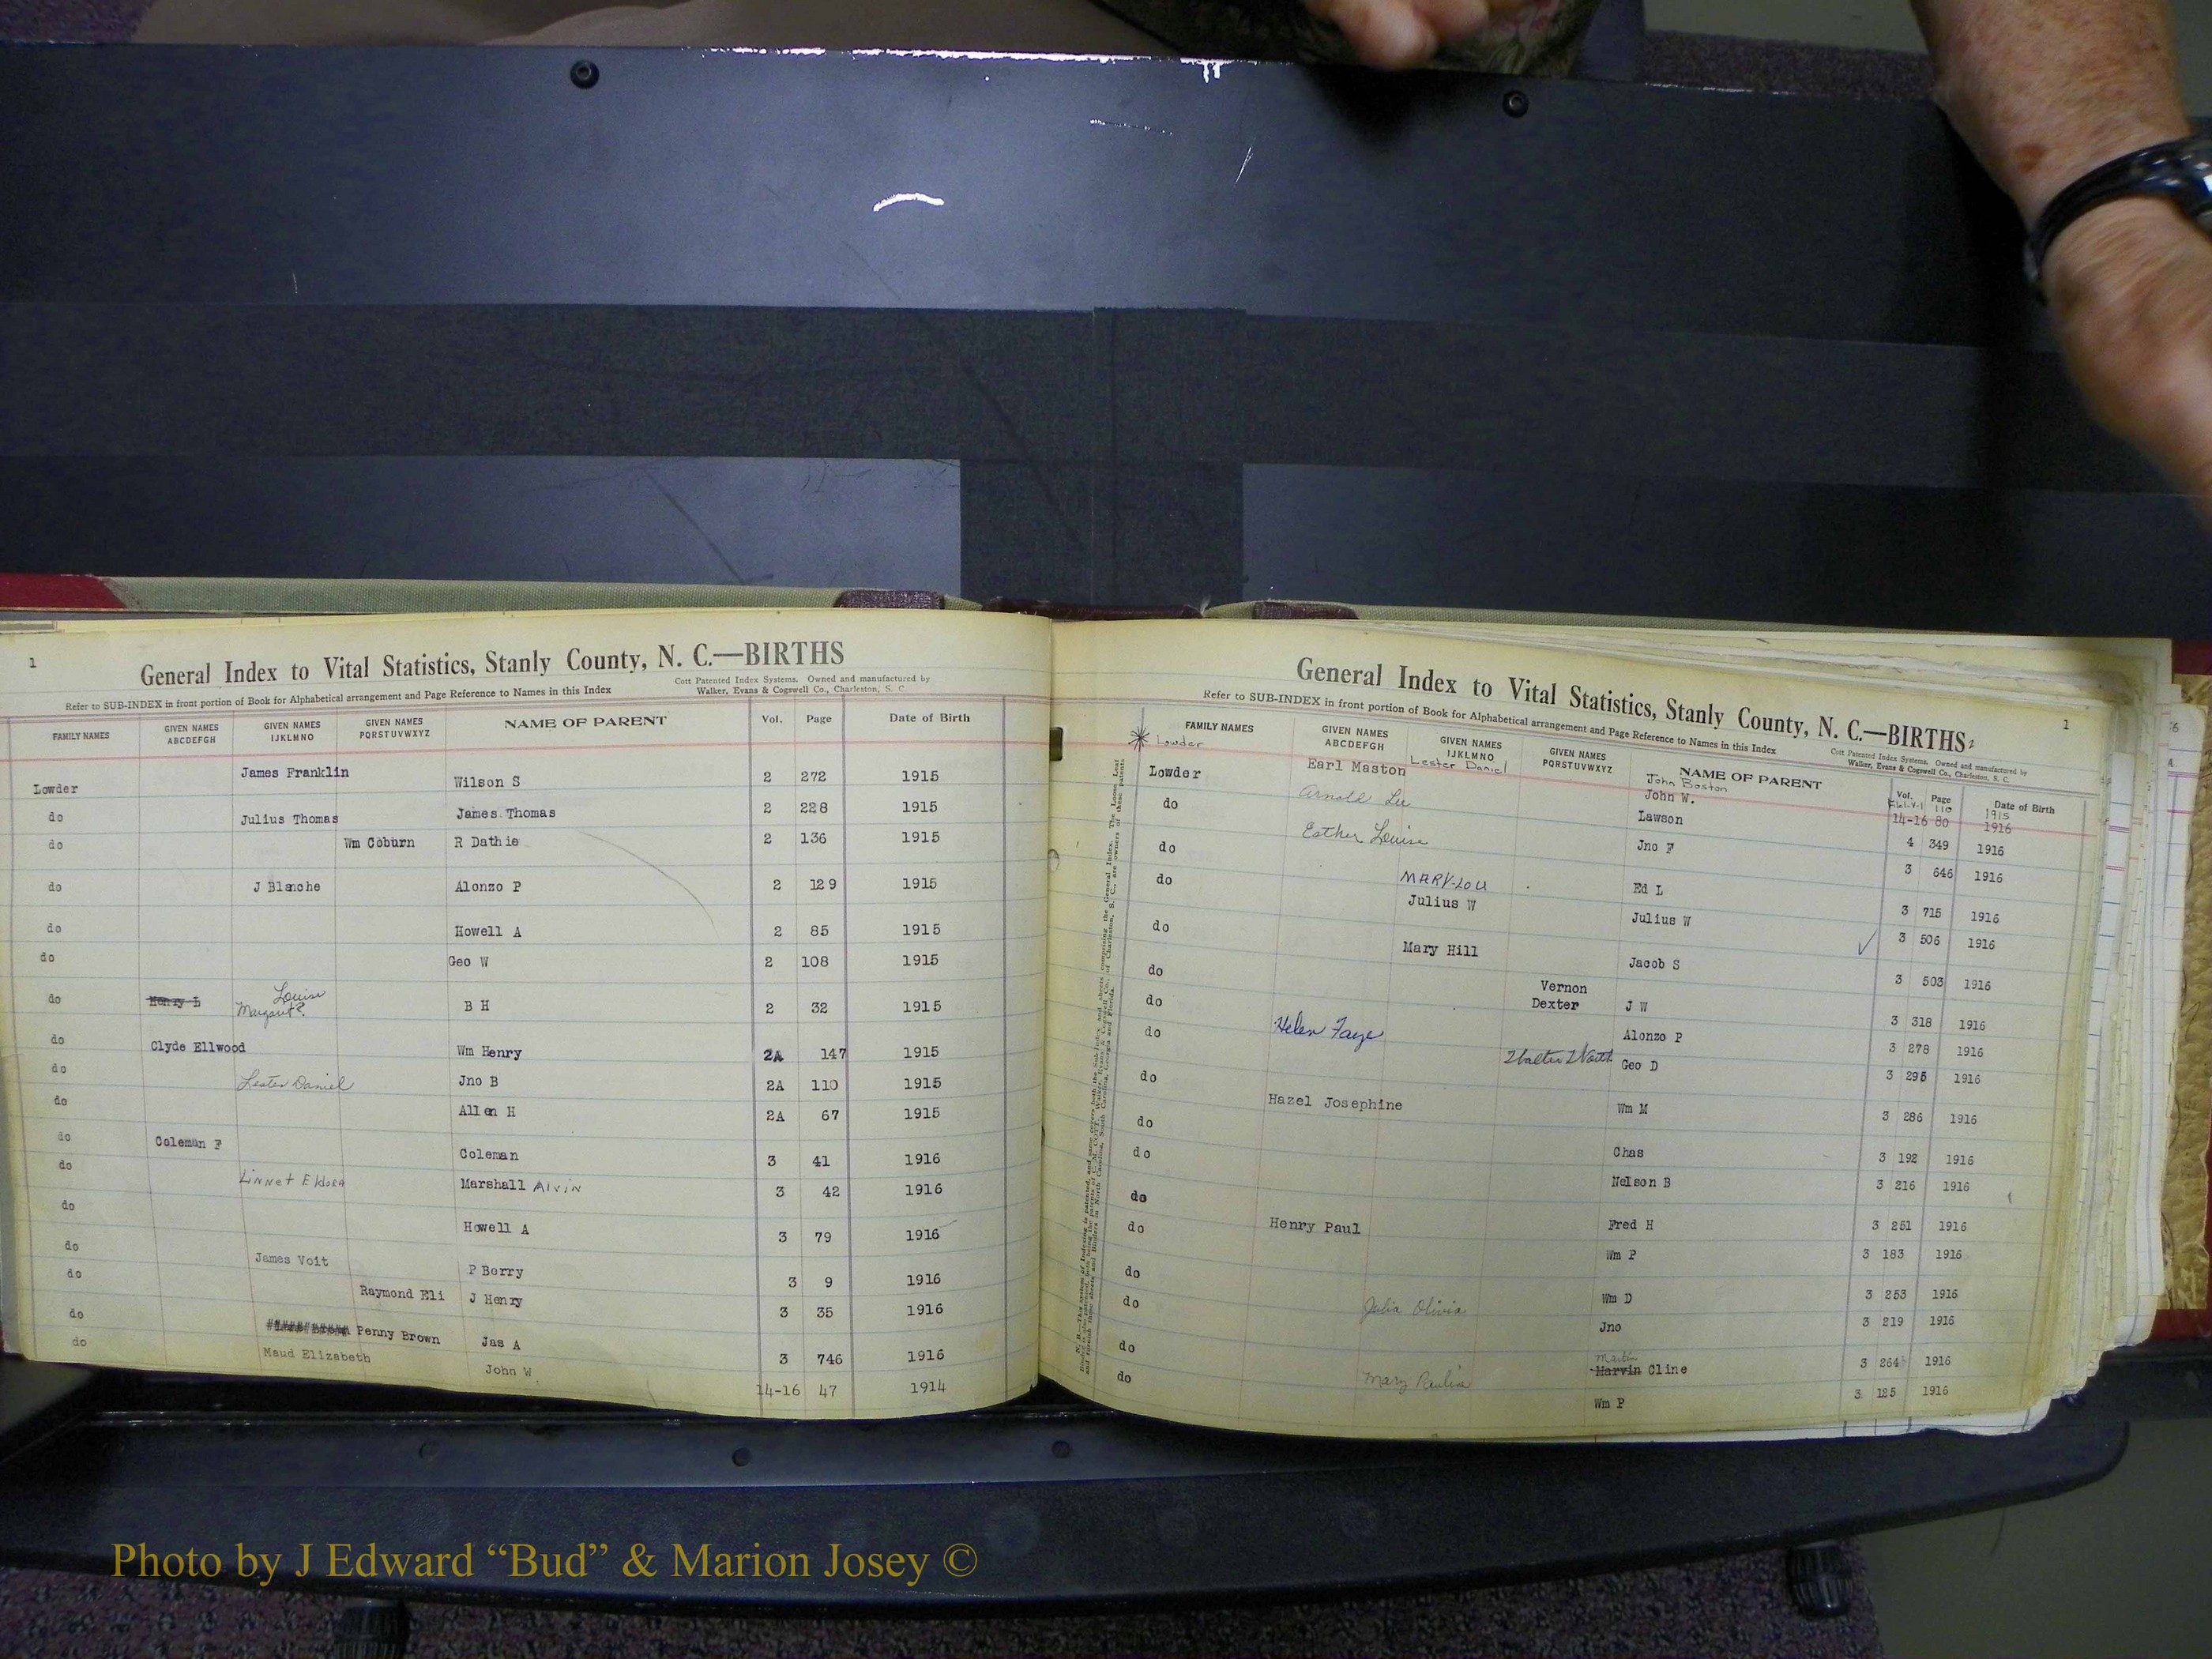 1
General Index to Vital Statistics, Stanly County, N. C.—BIRTHS
Refer to SUB-INDEX in front portion of Book for Alphabetical arrangement and Page Reference to Names in this Index
Cott Patented Index Systems. Owned and manufactured by
Walker, Evans & Cogswell Co., Charleston, S. C.
FAMILY NAMES GIVEN NAMES ABCDEFGH GIVEN NAMES IJKLMNO GIVEN NAMES PQRSTUVWXYZ NAME OF PARENT Vol. Page Date of Birth
Lowder James Franklin Wilson S 2 272 1915
do Julius Thomas James Thomas 2 228 1915
do Wm Coburn R Dathie 2 136 1915
do J Blanche Alonzo P 2 129 1915
do Howell A 2 85 1915
do Geo W 2 108 1915
do Henry L Louise Margaret B H 2 32 1915
do Clyde Ellwood Wm Henry 2A 147 1915
do Lester Daniel Jno B 2A 110 1915
do Allen H 2A 67 1915
do Coleman F Coleman 3 41 1916
do Linnet Eldora Marshall Alvin 3 42 1916
do Howell A 3 79 1916
do James Voit P Berry 3 9 1916
do Raymond Eli J Henry 3 35 1916
do Penny Brown Jas A 3 746 1916
do Maud Elizabeth John W 14-16 47 1914
General Index to Vital Statistics, Stanly County, N. C.—BIRTHS
1
Refer to SUB-INDEX in front portion of Book for Alphabetical arrangement and Page Reference to Names in this Index
Cott Patented Index Systems. Owned and manufactured by
Walker, Evans & Cogswell Co., Charleston, S. C.
FAMILY NAMES GIVEN NAMES ABCDEFGH GIVEN NAMES IJKLMNO GIVEN NAMES PQRSTUVWXYZ NAME OF PARENT Vol. Page Date of Birth
Lowder Lester Daniel John Boston 110 1915
Lowder Earl Maston John W. 14-16 80 1916
do Arnold Lee Lawson 4 349 1916
do Esther Louise Jno F 3 646 1916
do MARY-LOU Ed L 3 715 1916
Julius W Julius W 3 506 1916
do Mary Hill Jacob S 3 503 1916
do Vernon Dexter J W 3 318 1916
do Alonzo P 3 278 1916
do Helen Faye Walter Geo D 3 295 1916
do Hazel Josephine Wm M 3 286 1916
do Chas 3 192 1916
do Nelson B 3 216 1916
do Fred H 3 251 1916
do Henry Paul Wm P 3 183 1916
do Wm D 3 253 1916
do Julia Olivia Jno 3 219 1916
do Martin Marvin Cline 3 264 1916
do Mary Wm P 3 125 1916
Photo by J Edward “Bud” & Marion Josey ©